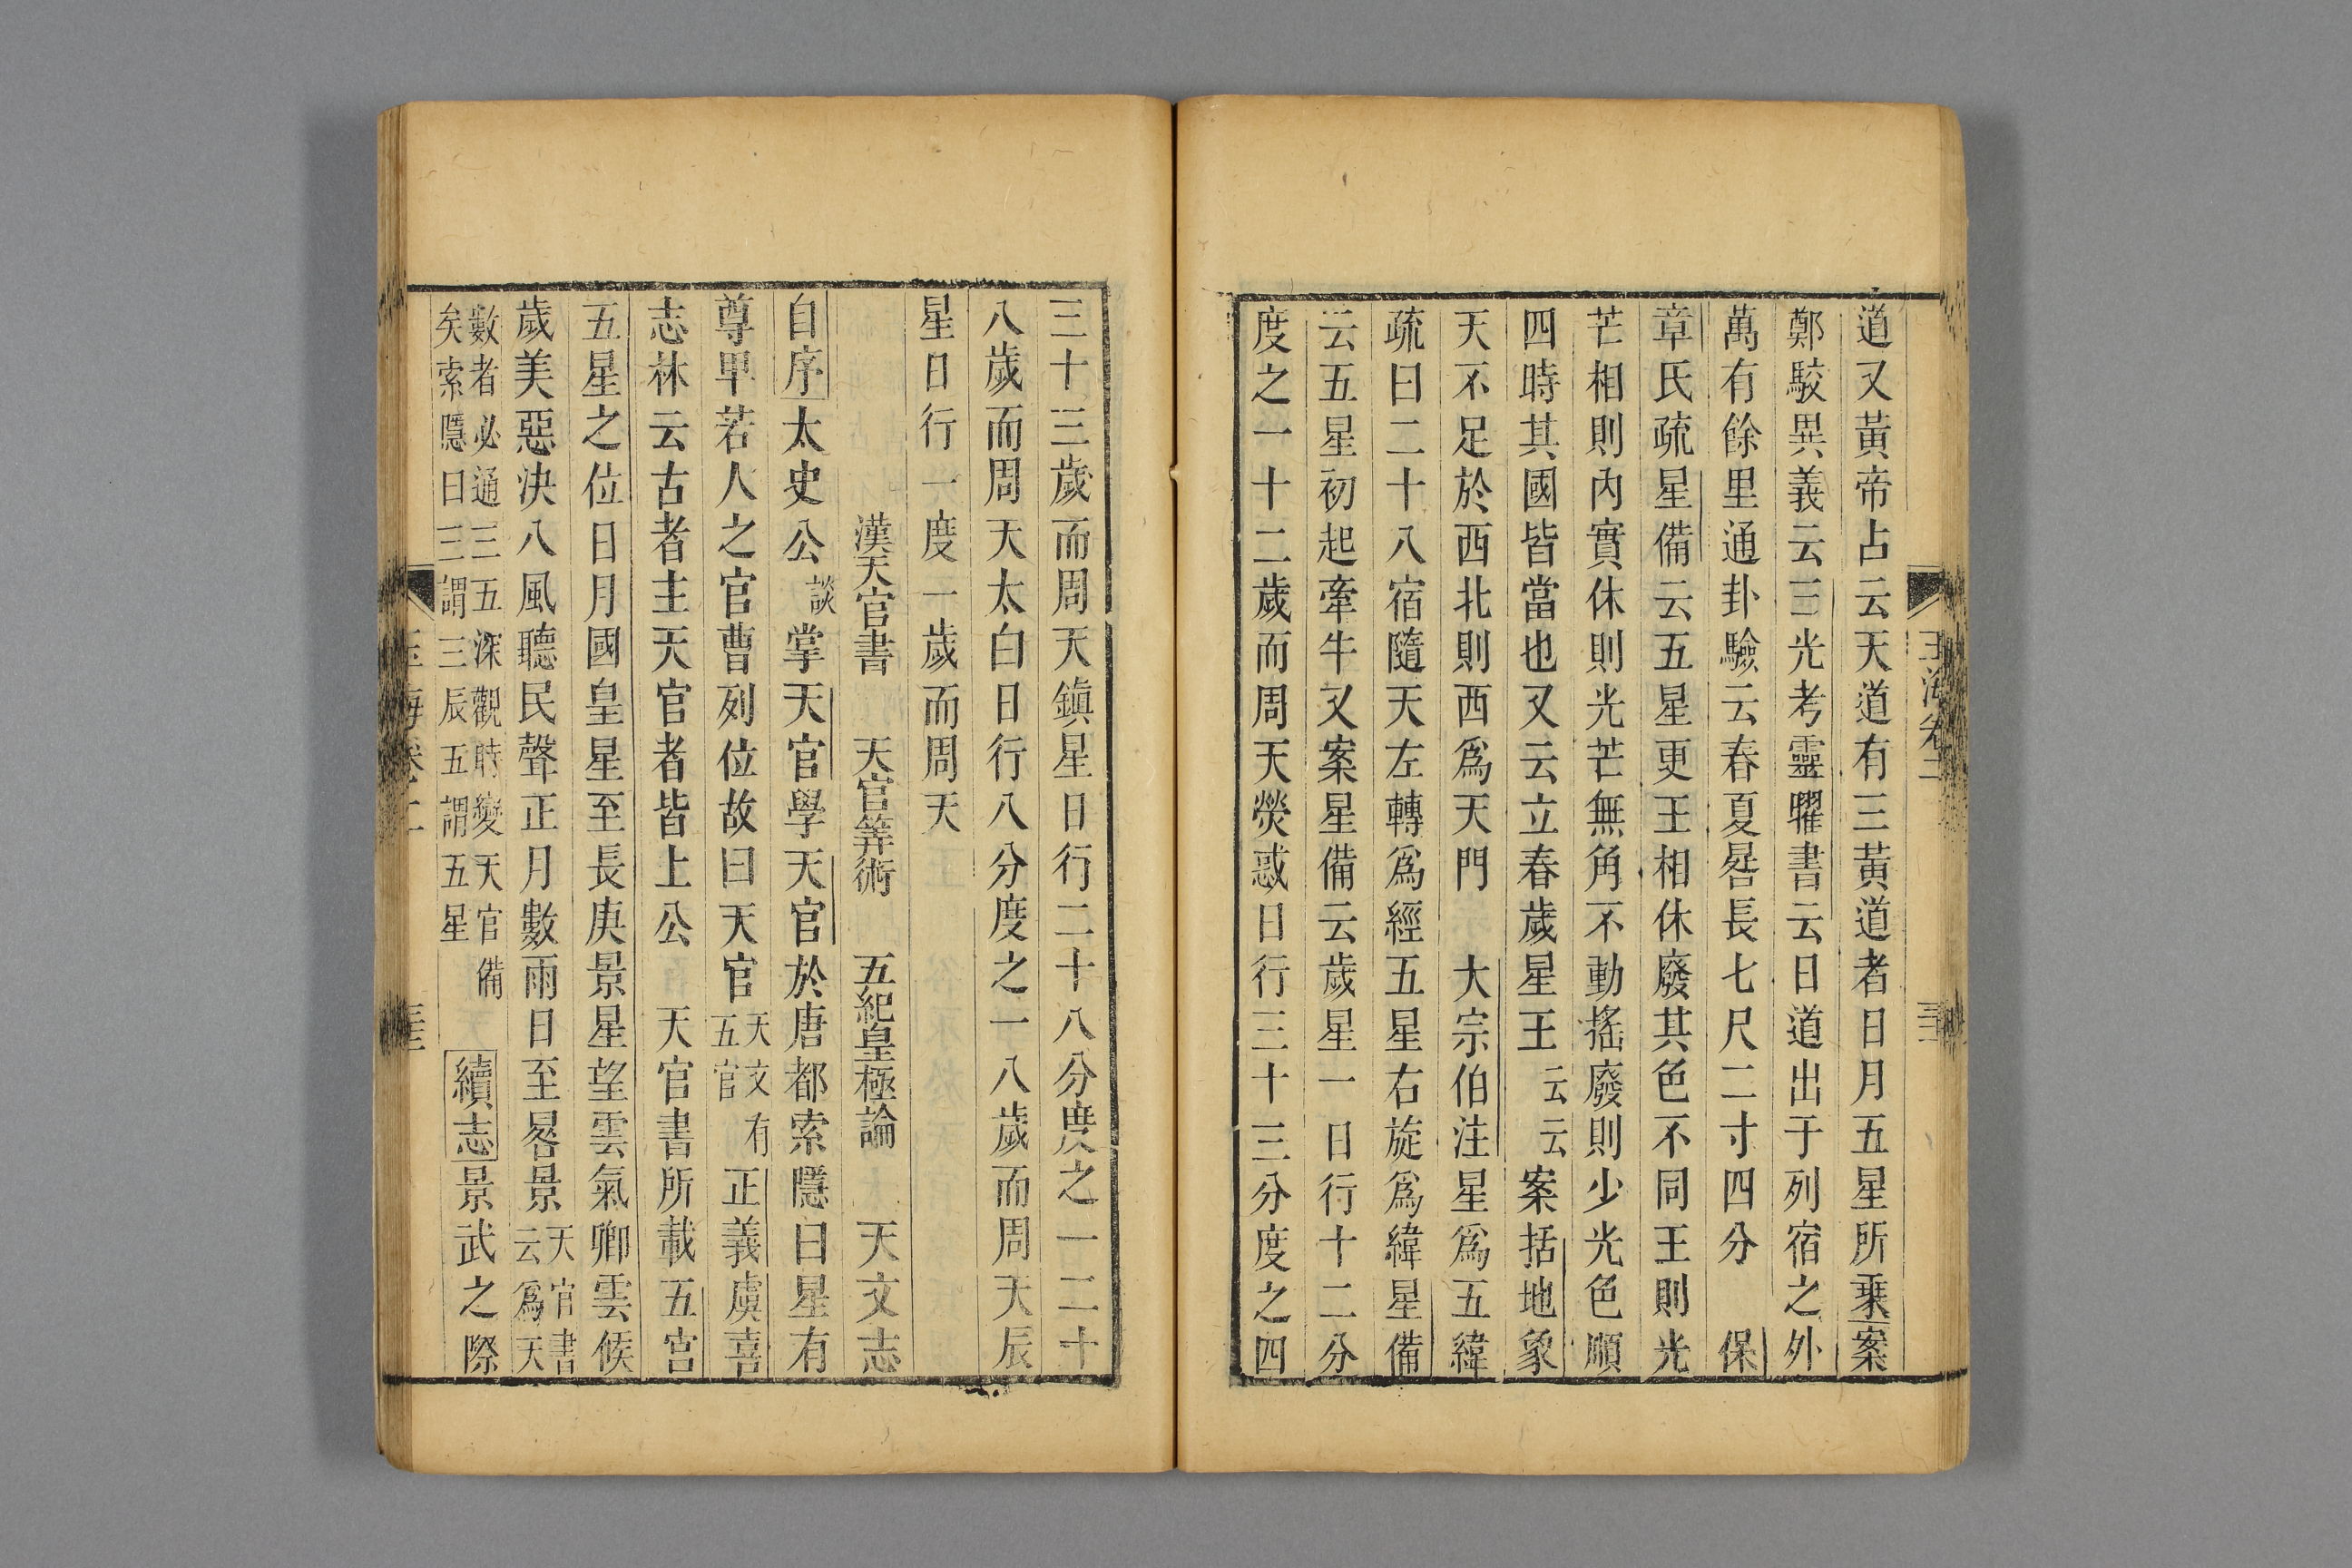 道又黃帝占云天道有三黃道者日月五星所乗案
鄭駮異義云三光考靈曜書云日道出于列宿之外
萬有餘里通卦驗云春夏晷長七尺二寸四分　保
章氏疏星備云五星更王相休廢其色不同王則光
芒相則內實休則光芒無角不動搖廢則少光色順
四時其國皆當也又云立春歲星王云云案括地象
天不足於西北則西爲天門　大宗伯注星爲五緯
疏曰二十八宿隨天左轉爲經五星右旋爲緯星備
云五星初起牽牛又案星備云歲星一日行十二分
度之一十二歲而周天熒惑日行三十三分度之四
三十三歲而周天鎮星日行二十八分度之一二十
八歲而周天太白日行八分度之一八歲而周天辰
星日行一度一歲而周天
漢天官書　天官筭術　五紀皇極論　天文志
自序太史公談掌天官學天官於唐都索隱曰星有
尊甲若人之官曹列位故曰天官天文有五官正義虞喜
志林云古者主天官者皆上公　天官書所載五宮
五星之位日月國皇星至長庚景星望雲氣卿雲候
歲美惡決八風聽民聲正月數雨日至晷景天官書云爲天
數者必通三五深觀時變天官備矣索隱曰三謂三辰五謂五星　續志景武之際
玉海卷二